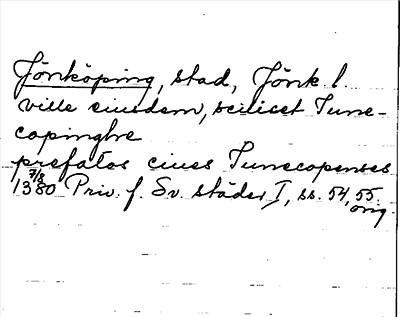 Jönköping, stad, Jönk. l.
ville eiusdem, scilicet June-
copinghe
prefatos ciues Junecopenses
7/8 1380 Priv. f. Sv. städer I, ss. 54, 55.
orig.